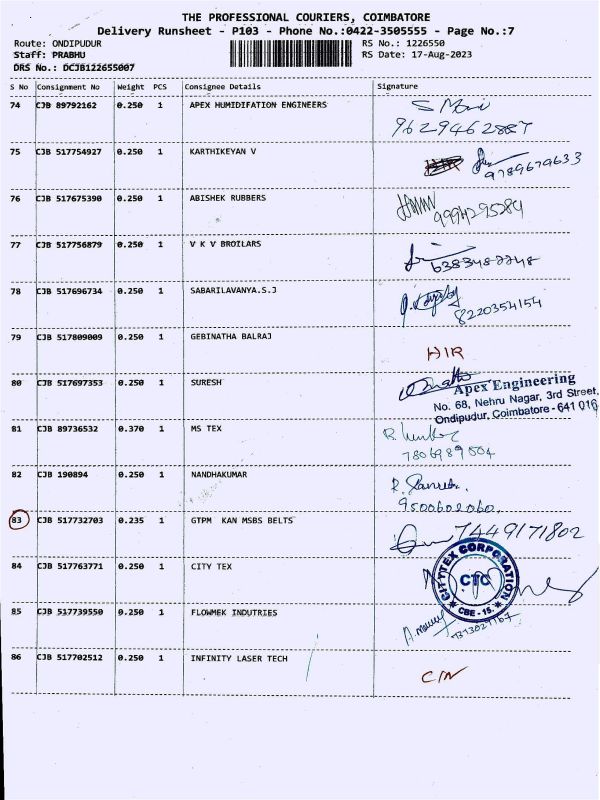 THE PROFESSIONAL COURIERS, COIMBATORE
Delivery Runsheet - P103 - Phone No.:0422-3505555 - Page No.:7
Route: ONDIPUDUR RS No.: 1226550
Staff: PRABHU RS Date: 17-Aug-2023
DRS No.: DCJB122655007
S No Consignment No Weight PCS Consignee Details Signature
74 CJB 89792162 0.250 1 APEX HUMIDIFATION ENGINEERS
75 CJB 517754927 0.250 1 KARTHIKEYAN V
9789679633
76 CJB 517675390 0.250 1 ABISHEK RUBBERS
77 CJB 517756879 0.250 1 V K V BROILARS
78 CJB 517696734 0.250 1 SABARILAVANYA.S.J
8220354154
79 CJB 517809009 0.250 1 GEBINATHA BALRAJ
HIR
80 CJB 517697353 0.250 1 SURESH
Apex Engineering
No. 68, Nehru Nagar, 3rd Street,
Ondipudur, Coimbatore - 641 016
81 CJB 89736532 0.370 1 MS TEX
7806989504
82 CJB 190894 0.250 1 NANDHAKUMAR
9500602060.
83 CJB 517732703 0.235 1 GTPM KAN MSBS BELTS
7449171802
84 CJB 517763771 0.250 1 CITY TEX
CITYTEX CORPORATION
CTC
CBE - 15.
85 CJB 517739550 0.250 1 FLOWMEK INDUTRIES
86 CJB 517702512 0.250 1 INFINITY LASER TECH